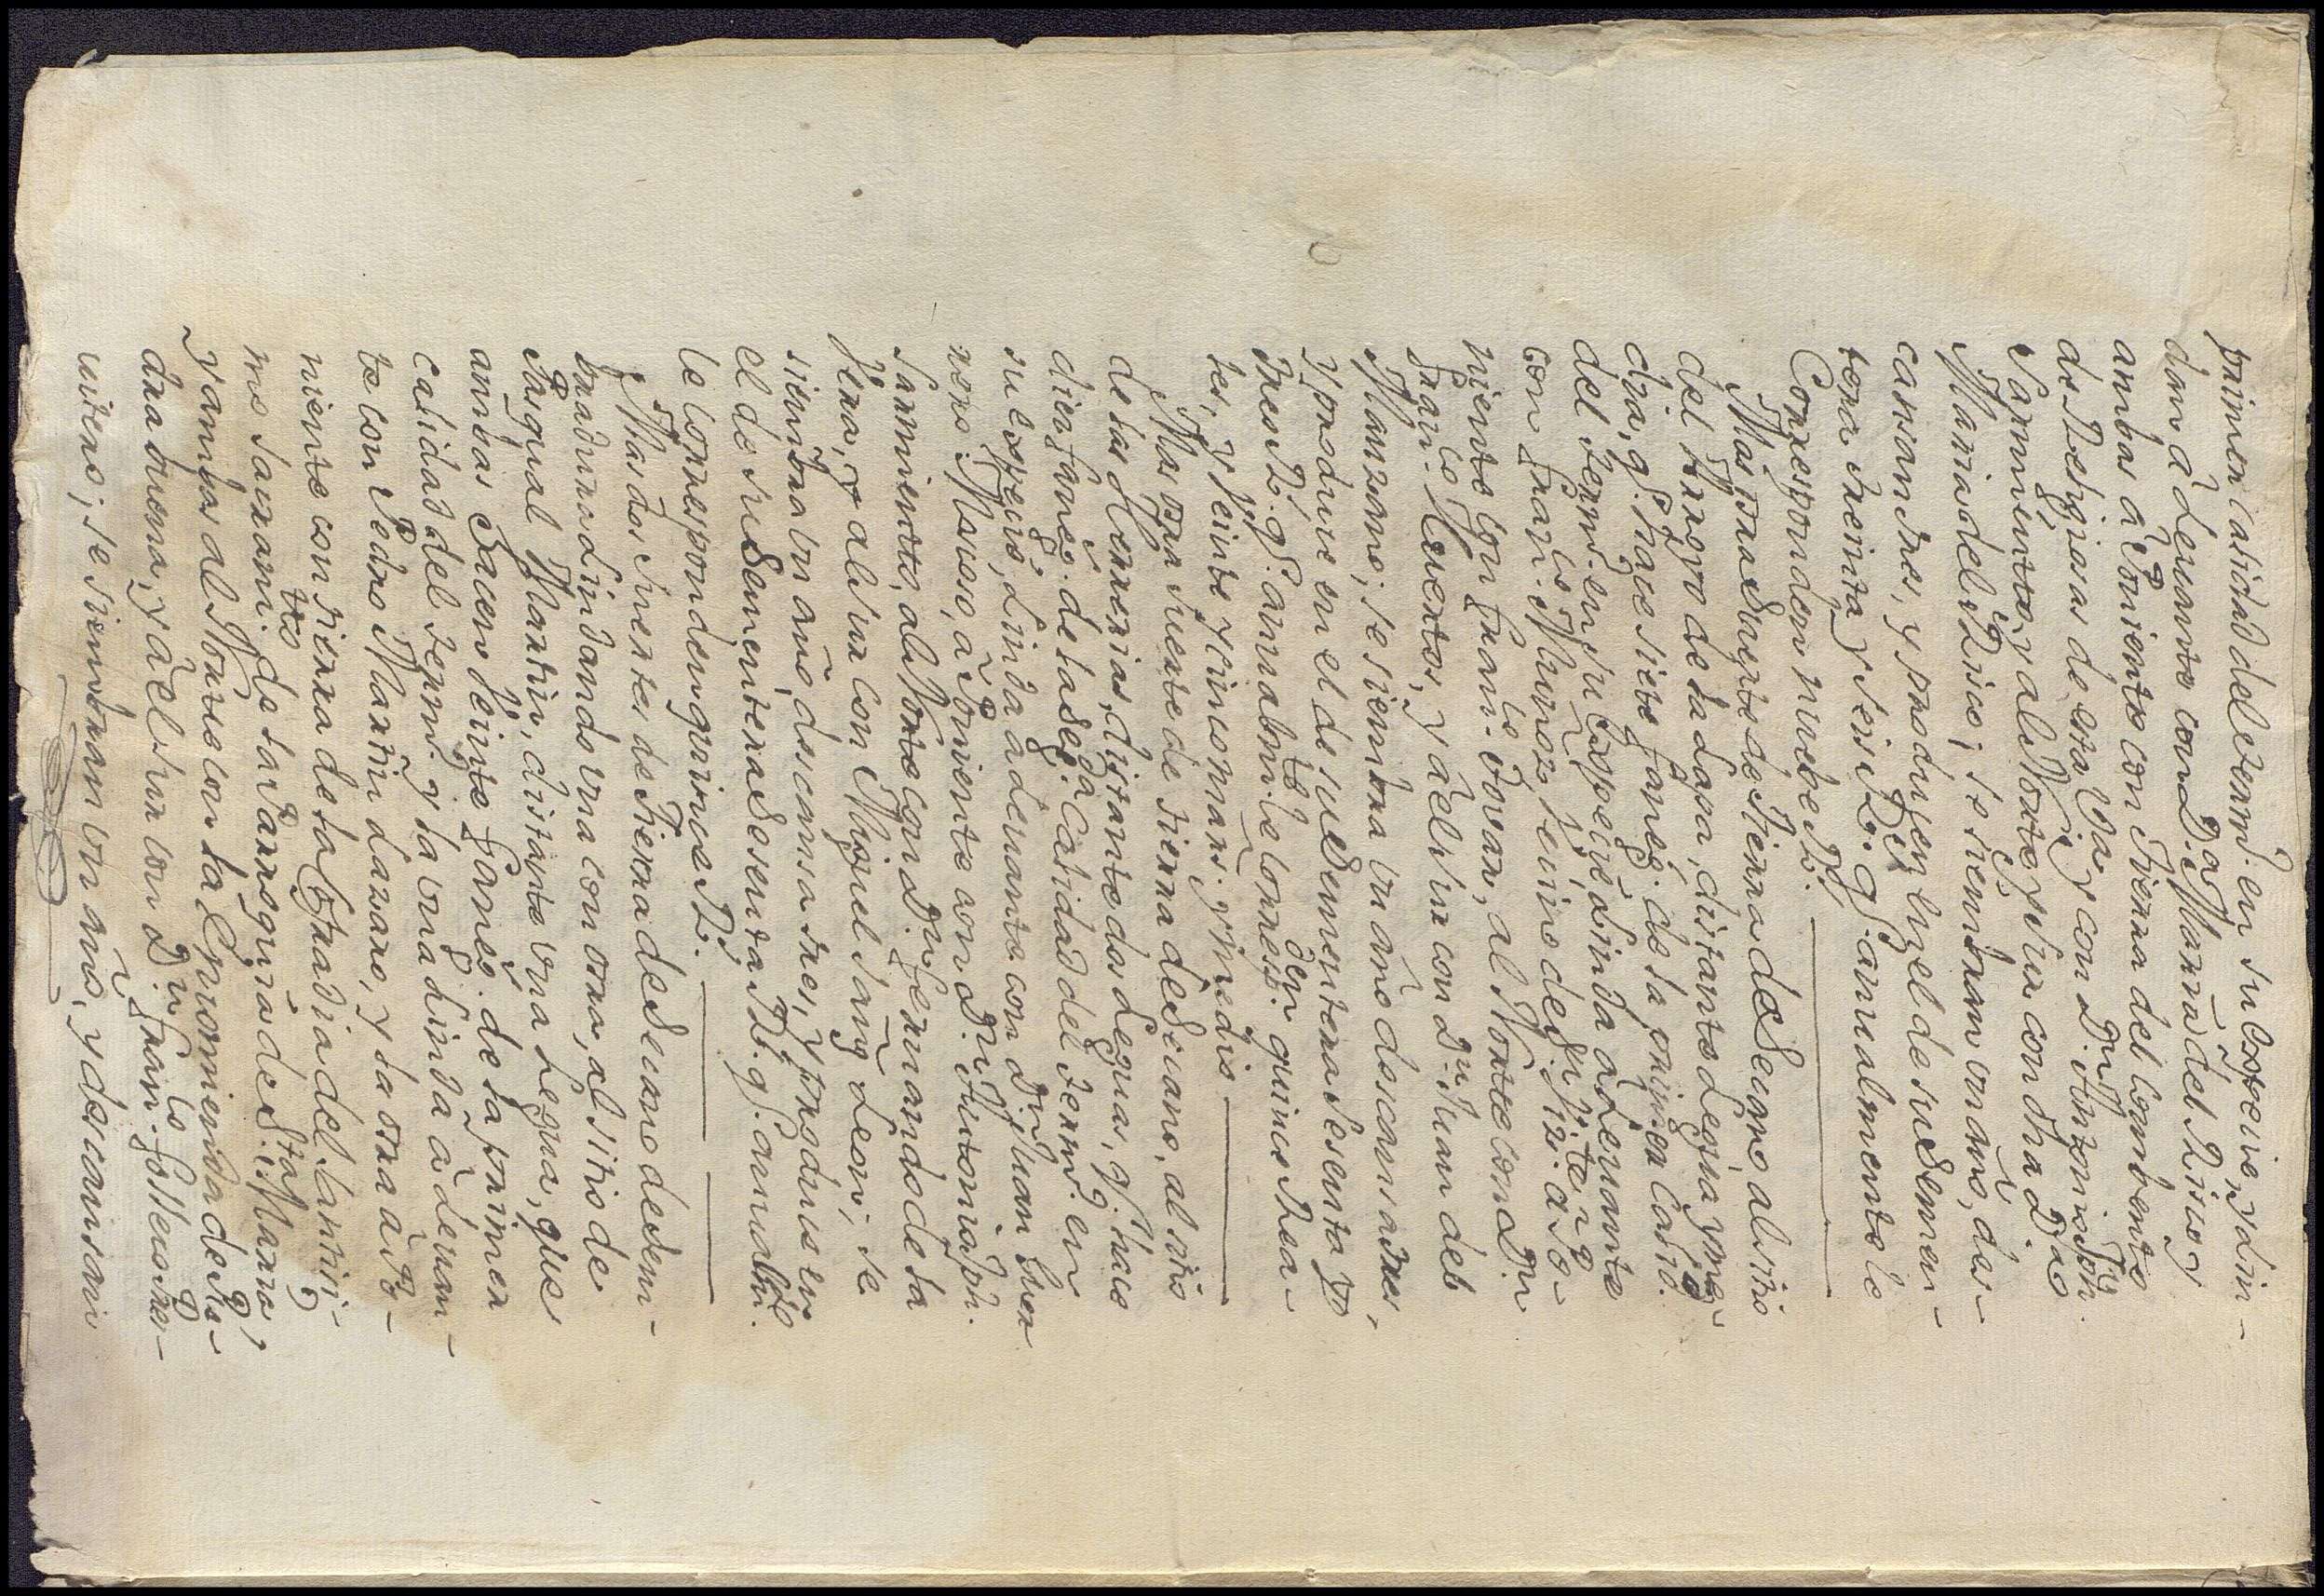 primer calidad del termº. en su espezie, y lin-
dan â Levante con D.ª Maria del Risco y
ambas â Poniente con tierra del combento
de Relijiosas de esta V.ª y con D.n Antonio Jph.
Sarmiento, y al Norte y Sur con dha D.ª
Maria del Risco; se siembran un año, des-
cansan tres, y produsen en el de su Semen-
tera treinta y seis R.s q.e anualmente le
Corresponden nuebe R.s
Mas otra Suerte de tierra de Secano, al sitio
del Arroyo de la Lapa, distante legua y me-
dia, q.e haze siete faneg.s de la primer Calid.
del termº. en su espezie, linda â Levante
con Fran.co Muñoz, vezino de S.n Viz.te, a Po-
niente con Fran.co Tovar, al Norte con D.n
Fran.co Montes, y âel Sur con D.n Juan del
Manzano; se siembra un año descansa tres,
y produse en el de su Sementera sesenta y
tres R.s q.e anualm.te le corresp.den quinse Rea-
les, y veinte y sinco mârs. y medio
Mas otra suerte de tierra de Secano, al sitio
de las Herrerias, distante dos Leguas, q.e hase
dies faneg.s de la Seg.da Calidad del termº. en
su espezie, linda a Levante con D.n Juan Guer
rero Masuso, â Poniente con D.n Antonio Jph.
Sarmiento, al Norte con D.n Fernando de la
Vera, y al Sur con Miguel Sanz Leon; se
siembra un año, descansa tres, y produse en
el de su Sementera Sesenta R.s q.e anualm.te
le corresponden quinse R.s
Mas dos suertes de tierra de Secano de sem-
bradura lindando una con otra, al sitio de
Pasqual Martin, distante una legua, que
ambas hacen veinte faneg.s de la primer
calidad del termº. y la una linda â Levan-
te con Pedro Martin lavaro, y la otra â Po-
niente con tierra de la Cofradia del Santisi-
mo Sacram.to de la Parroquia de S.ta Maria,
y ambas al Norte con la Encomienda de Pie-
dra buena, y âel Sur con D.n Fran.co
entero; se siembran un año, y descansan